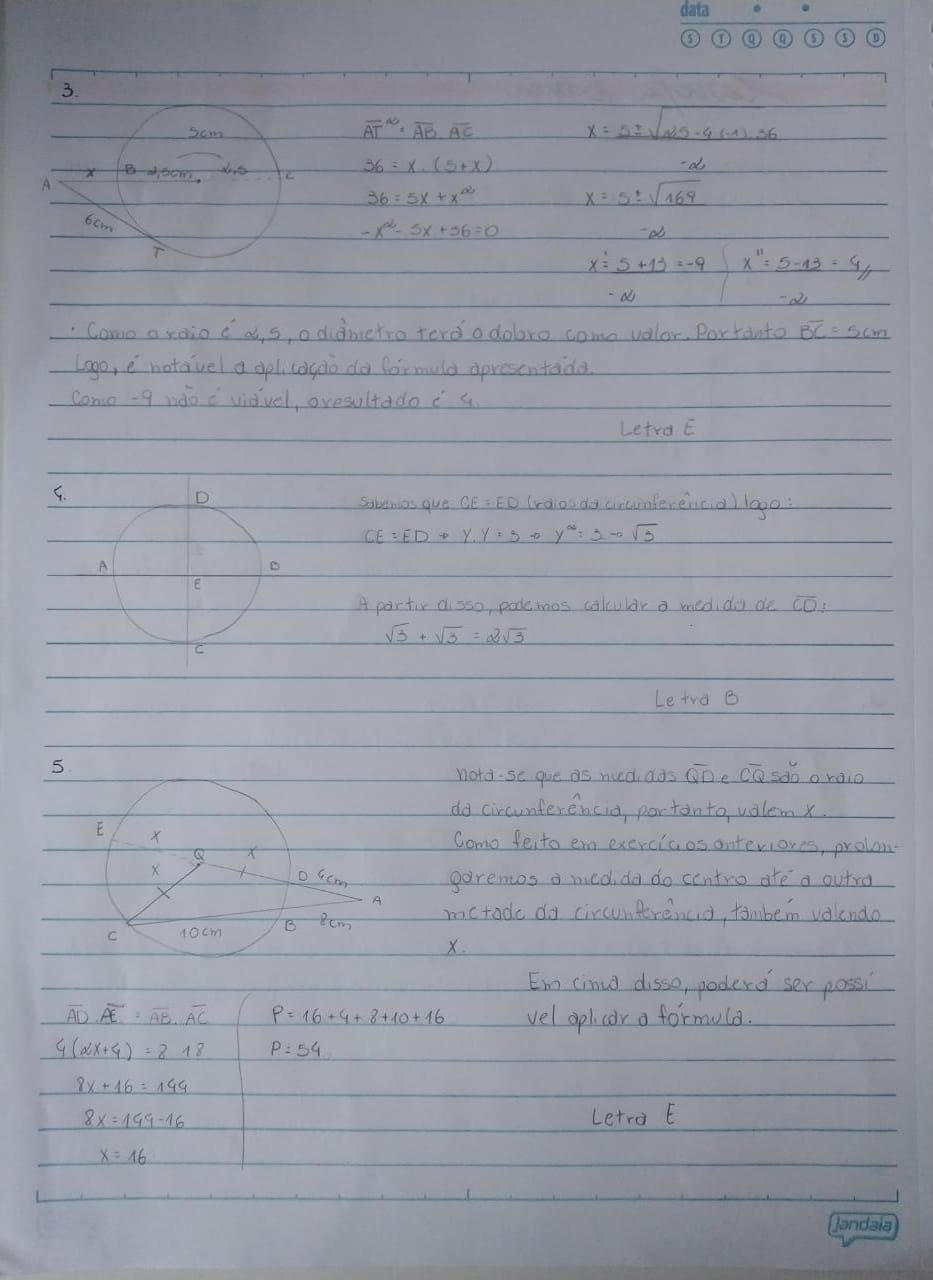 data
S T Q Q S S D
3.
5cm
A x B 2,5cm 2,5 C
6cm
T
AT² = AB . AC
36 = x . (5+x)
36 = 5x + x²
-x² - 5x + 36 = 0
x = 5 ± √25 - 4 (-1) . 36
-2
x = 5 ± √169
-2
x' = 5 + 13 = -9
-2
x'' = 5 - 13 = 4//
-2
· Como o raio é 2,5, o diâmetro terá o dobro como valor. Portanto BC = 5cm
Logo, é notável a aplicação da fórmula apresentada.
Como -9 não é viável, o resultado é 4.
Letra E
4.
D
A B
E
C
Sabemos que CE = ED (raios da circunferência) logo:
CE = ED → y . y = 3 → y² = 3 → √3
A partir disso, podemos calcular a medida de CD:
√3 + √3 = 2√3
Letra B
5.
E x
Q x
x D 4cm
A
C 10cm B 8cm
Nota-se que as medidas QD e CQ são o raio
da circunferência, portanto, valem x.
Como feito em exercícios anteriores, prolon-
garemos a medida do centro até a outra
metade da circunferência, também valendo
x.
Em cima disso, poderá ser possí
vel aplicar a fórmula.
AD . AE = AB . AC
4(2x+4) = 8 . 18
8x + 16 = 144
8x = 144 - 16
x = 16
P = 16 + 4 + 8 + 10 + 16
P = 54
Letra E
Jandaia